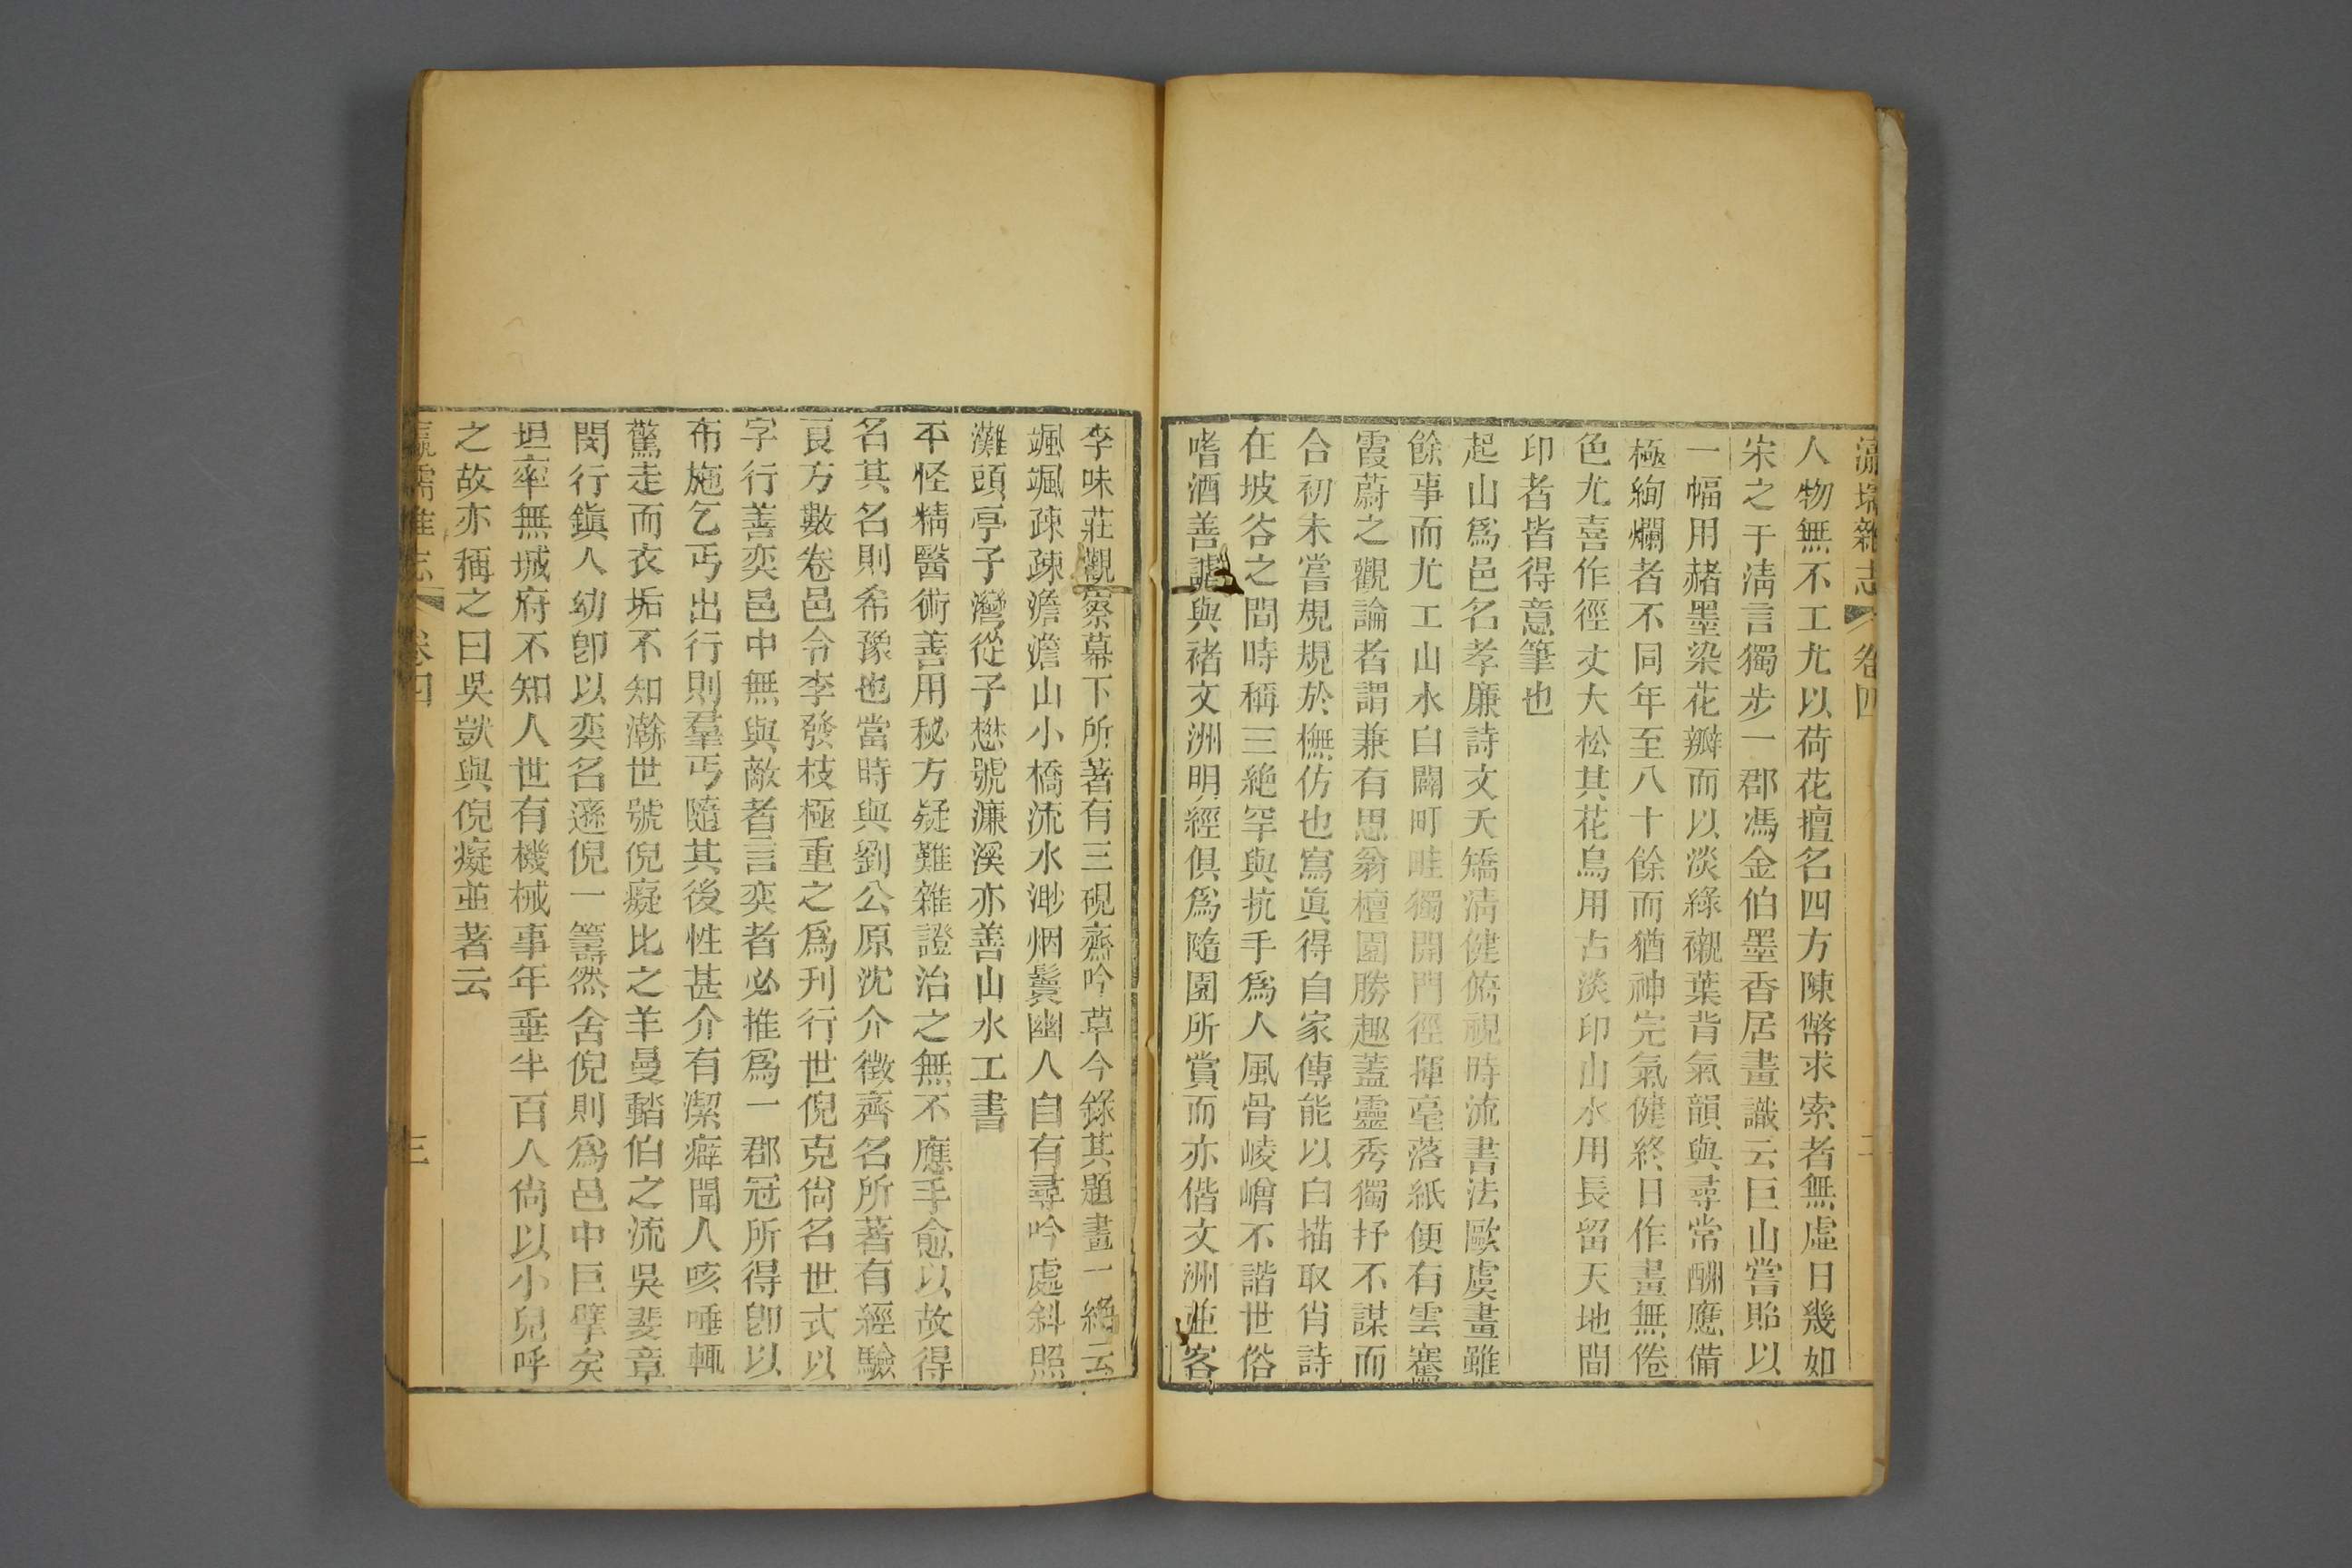 瀛壖雜志 卷四 二
人物無不工尤以荷花擅名四方陳幣求索者無虛日幾如
宋之于淸言獨步一郡馮金伯墨香居畫識云巨山嘗貽以
一幅用赭墨染花瓣而以淡綠襯葉背氣韻與尋常酬應備
極絢爛者不同年至八十餘而猶神完氣健終日作畫無倦
色尤喜作徑丈大松其花鳥用古淡印山水用長留天地間
印者皆得意筆也
起山爲邑名孝廉詩文夭矯淸健俯視時流書法歐虞畫雖
餘事而尤工山水自闢町畦獨開門徑揮毫落紙便有雲騫
霞蔚之觀論者謂兼有思翁檀園勝趣蓋靈秀獨抒不謀而
合初未嘗規規於橅仿也寫眞得自家傳能以白描取肖詩
在坡谷之間時稱三絶罕與抗手爲人風骨崚嶒不諧世俗
嗜酒善謔與褚文洲明經俱爲隨園所賞而亦偕文洲並客
李味莊觀察幕下所著有三硯齋吟草今錄其題畫一絶云
颯颯疎疎澹澹山小橋流水渺烟鬟幽人自有尋吟處斜照
灘頭亭子灣從子懋號濂溪亦善山水工書
不怪精醫術善用秘方疑難雜證治之無不應手愈以故得
名其名則希豫也當時與劉公原沈介徵齊名所著有經驗
良方數卷邑令李發枝極重之爲刊行世倪克尙名世式以
字行善奕邑中無與敵者言奕者必推爲一郡冠所得卽以
布施乞丐出行則羣丐隨其後性甚介有潔癖聞人咳唾輒
驚走而衣垢不知瀚世號倪癡比之羊曼䠛伯之流吳斐章
閔行鎭人幼卽以奕名遜倪一籌然舍倪則爲邑中巨擘矣
坦率無城府不知人世有機械事年垂半百人尙以小兒呼
之故亦稱之曰吳獃與倪癡並著云
瀛壖雜志 卷四 三